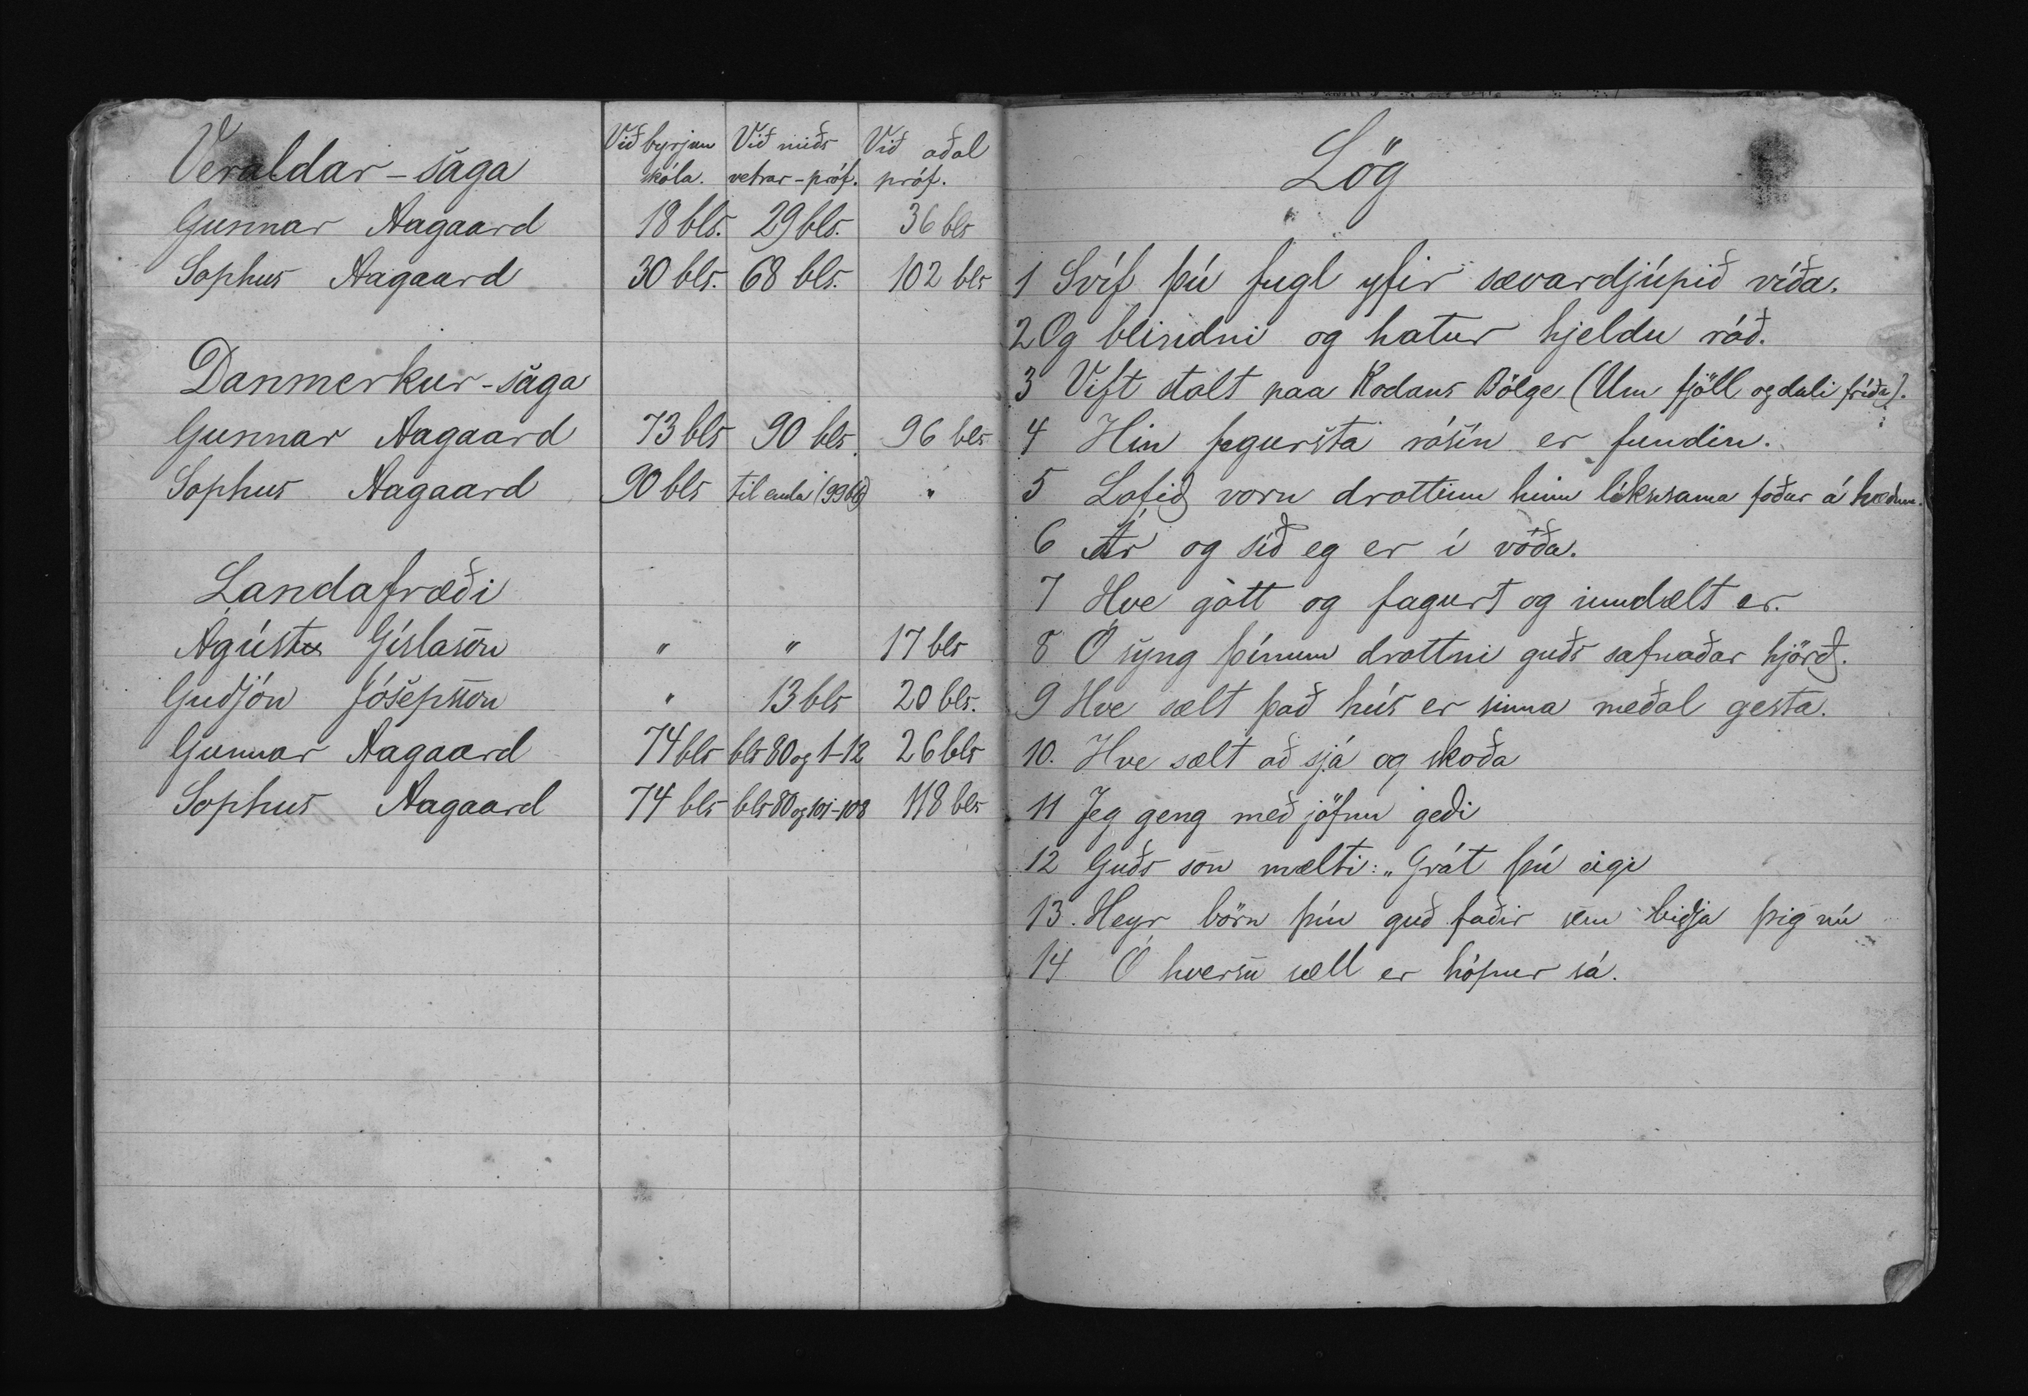 Veraldar-saga Við byrjun skóla. Við miðs vetrar-próf. Við aðal próf.
Gunnar Aagaard 18 bls. 29 bls. 36 bls
Sophus Aagaard 30 bls. 68 bls. 102 bls
Danmerkur-saga
Gunnar Aagaard 73 bls 90 bls 96 bls
Sophus Aagaard 90 bls til enda (99 bls) "
Landafræði
Ágúst Gíslason " " 17 bls
Guðjón Jósepsson " 13 bls 20 bls.
Gunnar Aagaard 74 bls bls 80 og 1-12 26 bls
Sophus Aagaard 74 bls bls 80 og 101-108 118 bls
Lög
1 Svíf þú fugl yfir sævardjúpið víða.
2 Og blindni og hatur hjeldu ráð.
3 Vift stolt paa Kodans Bölge (Um fjöll og dali fríða).
4 Hin fegursta rósin er fundin.
5 Lofið vorn drottinn hinn líknsama föður á hæðum.
6 Ár og síð eg er í vóða.
7 Hve gott og fagurt og inndælt er.
8 Ó syng þínum drottni guðs safnaðar hjörð.
9 Hve sælt það hús er sinna meðal gesta.
10. Hve sælt að sjá og skoða
11 Jeg geng með jöfnu geði
12 Guðs son mælti: „Grát þú eigi
13. Heyr börn þín guð faðir sem biðja þig nú
14 Ó hversu sæll er hópur sá.